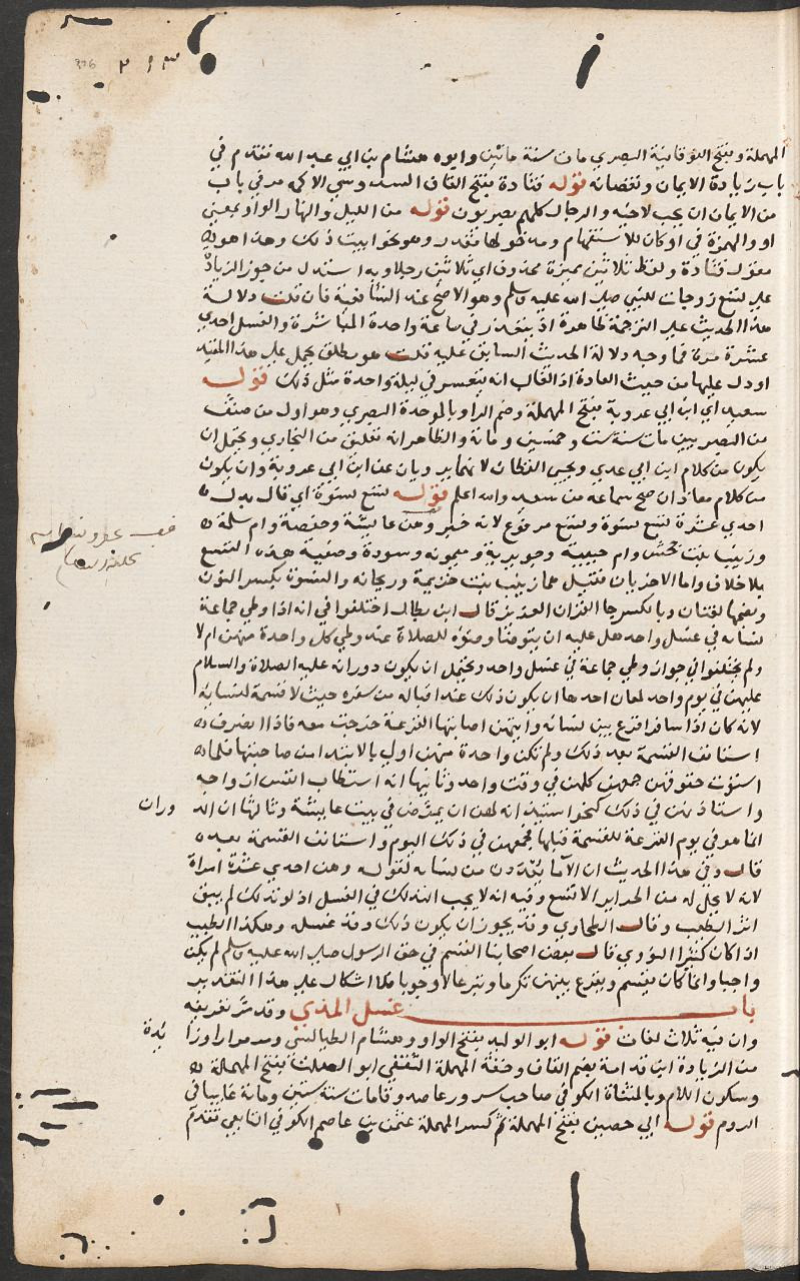 ٢١٣
396
المهملة وبفتح الفوقانية البصري مات سنة مائتين وابوه هشام بن ابي عبد الله تقدم في
باب زيادة الايمان ونقصانه قوله قتادة بفتح القاف السدوسي الاكمه مر في باب
من الايمان ان يحب لاخيه والرجال كلهم بصريون قوله من الليل والنهار الواو بمعنى
او والهمزة في اوكان للاستفهام ومدخولها مقدر وهو نحو اثبت ذلك وهذا هو
مقول قتادة ولفظ ثلاثين مميزه محذوف اي ثلاثين رجلا وبه استدل من جوز الزيادة
على تسع زوجات للنبي صلى الله عليه وسلم وهو الاصح عند الشافعية فان قلت دلالة
هذا الحديث على الترجمة ظاهرة اذ يتعذر في ساعة واحدة المباشرة والغسل احدى
عشرة مرة فما وجه دلالة الحديث السابق عليه قلت هو مطلق يحمل على هذا المقيد
او دل عليها من حيث العادة اذ الغالب انه يتعسر في ليلة واحدة مثل ذلك قوله
سعيد اي ابن ابي عروبة بفتح المهملة وضم الراو بالموحدة البصري وهو اول من صنف
من البصريين مات سنة ست وخمسين ومائة والظاهر انه تعليق من البخاري ويحتمل ان
يكون من كلام ابن ابي عدي ويحيى القطان لانهما يرويان عن ابن ابي عروبة وان يكون
من كلام معاذ ان صح سماعه من سعيد والله اعلم قوله تسع نسوة اي قال بدل
احدى عشرة تسع نسوة وتسع مرفوع لانه خبر وهن عايشة وحفصة وام سلمة
وزينب بنت جحش وام حبيبة وجويرية وميمونه وسودة وصفية هذه التسع
بلا خلاف واما الاخريان فقيل هما زينب بنت خزيمة وريحانة والنسوة بكسر النون
وبضمها لغتان وبالكسر جا القران العزيز قال ابن بطال اختلفوا في انه اذا وطي جماعة
نسايه في غسل واحد هل عليه ان يتوضا وضوه للصلاة عند وطي كل واحدة منهن ام لا
ولم يختلفوا في جواز وطي جماعة في غسل واحد ويحتمل ان يكون دورانه عليه الصلاة والسلام
عليهن في يوم واحد لمعان احدها ان يكون ذلك عند اقباله من سفره حيث لا قسمة لنسايه
لانه كان اذا سافر اقرع بين نسائه وايتهن اصابتها القرعة خرجت معه فاذا انصرف
استانف القسمة بعد ذلك ولم تكن واحدة منهن اولى بالابتدا من صاحبتها فلما
استوت حقوقهن جمعهن كلهن في وقت واحد وثانيها انه استطاب انفس ازواجه
واستاذنهن في ذلك كنحو استيذانه لهن ان يمرض في بيت عايشة وثالثها ان الد
وران
انما هو في يوم القرعة للقسمة قبلها فجمعهن في ذلك اليوم واستانف القسمة بعده
قال وفي هذا الحديث ان الاما يعددن من نسايه لقوله وهن احدى عشرة امراة
لانه لا يحل له من الحراير الا تسع وفيه انه لا يجب الدلك في الغسل اذ لو تدلك لم يبق
اثر الطيب وقال الطحاوي وقد يجوز ان يكون ذلك وقد غسله وهكذا الطيب
اذا كان كثيرا لبودي قال بعض اصحابنا القسم في حق الرسول صلى الله عليه وسلم لم يكن
واجبا وانما كان يقسم ويقرع بينهن تكرما وتبرعا لا وجوبا فلا اشكال على هذا التقدير
باب غسل المذي وقد مر تعريفه
وان فيه ثلاث لغات قوله ابو الوليد بفتح الواو وهشام الطيالسي ومر مرارا وزا
ئدة
من الزيادة ابن قدامة بضم القاف وخفة المهملة الثقفي ابو الصلت بفتح المهملة
وسكون اللام وبالمثناة الكوفي صاحب سنة ورعا صدوقا مات سنة ستين ومائة غازيا في
الروم قوله ابي حصين بفتح المهملة ثم كسر المهملة عثمن بن عاصم الكوفي التابعي تقدم